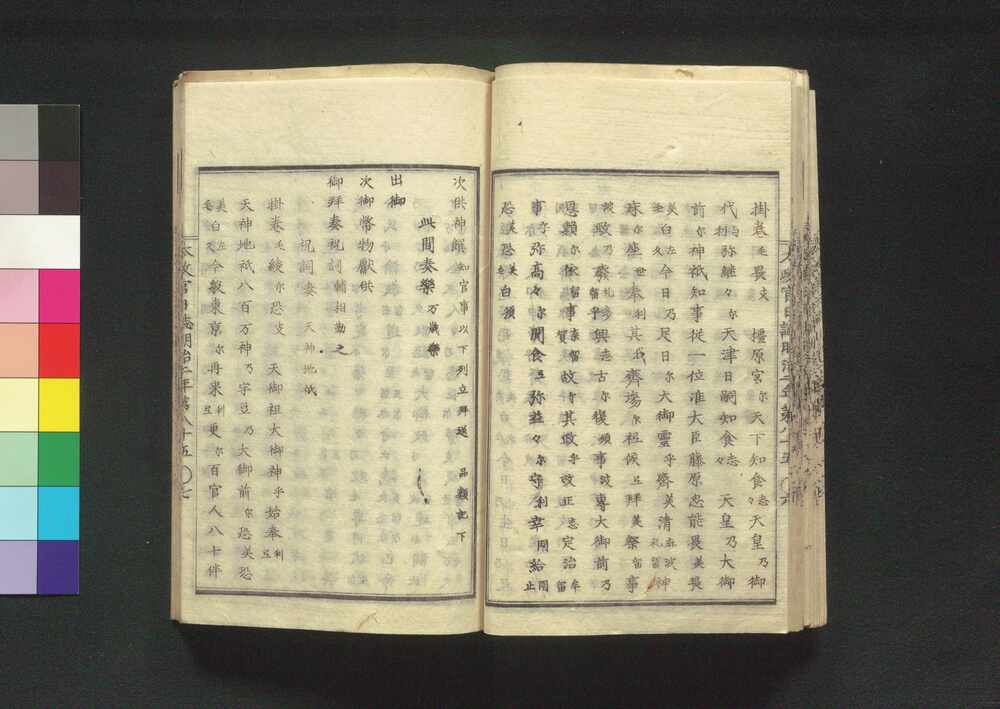 掛巻毛畏支 橿原宮尓天下知食志々天皇乃御
代与利弥継々尓天津日嗣知食志々 天皇乃大御
前尓神祇知事従一位准大臣藤原忠能畏美畏
美白左久今日乃足日尓大御霊乎齋美清麻波留神
床尓坐世奉利其齋場尓祖候旦拝美祭留事
故尓其政乎改正志定給牟
事弥高々尓聞食旦弥益々尓守利幸閇給閇
恐美恐美毛白須
太政官日誌明治二年第八十五 〇六
次供神饌知官事以下列立拜送 品類記下
此間奏樂万歳樂
出御
次御幣物獻供
御拜奏祝詞輔相勤之
祝詞 天神地祇
掛巻毛綾尓恐支 天御祖大御神乎始奉利旦
天神地祇八百万神乃宇豆乃大御前尓恐美恐
美毛白左久今般東京尓再来利旦更尓百官人八十伴
太政官日誌明治二年第八十五 〇七